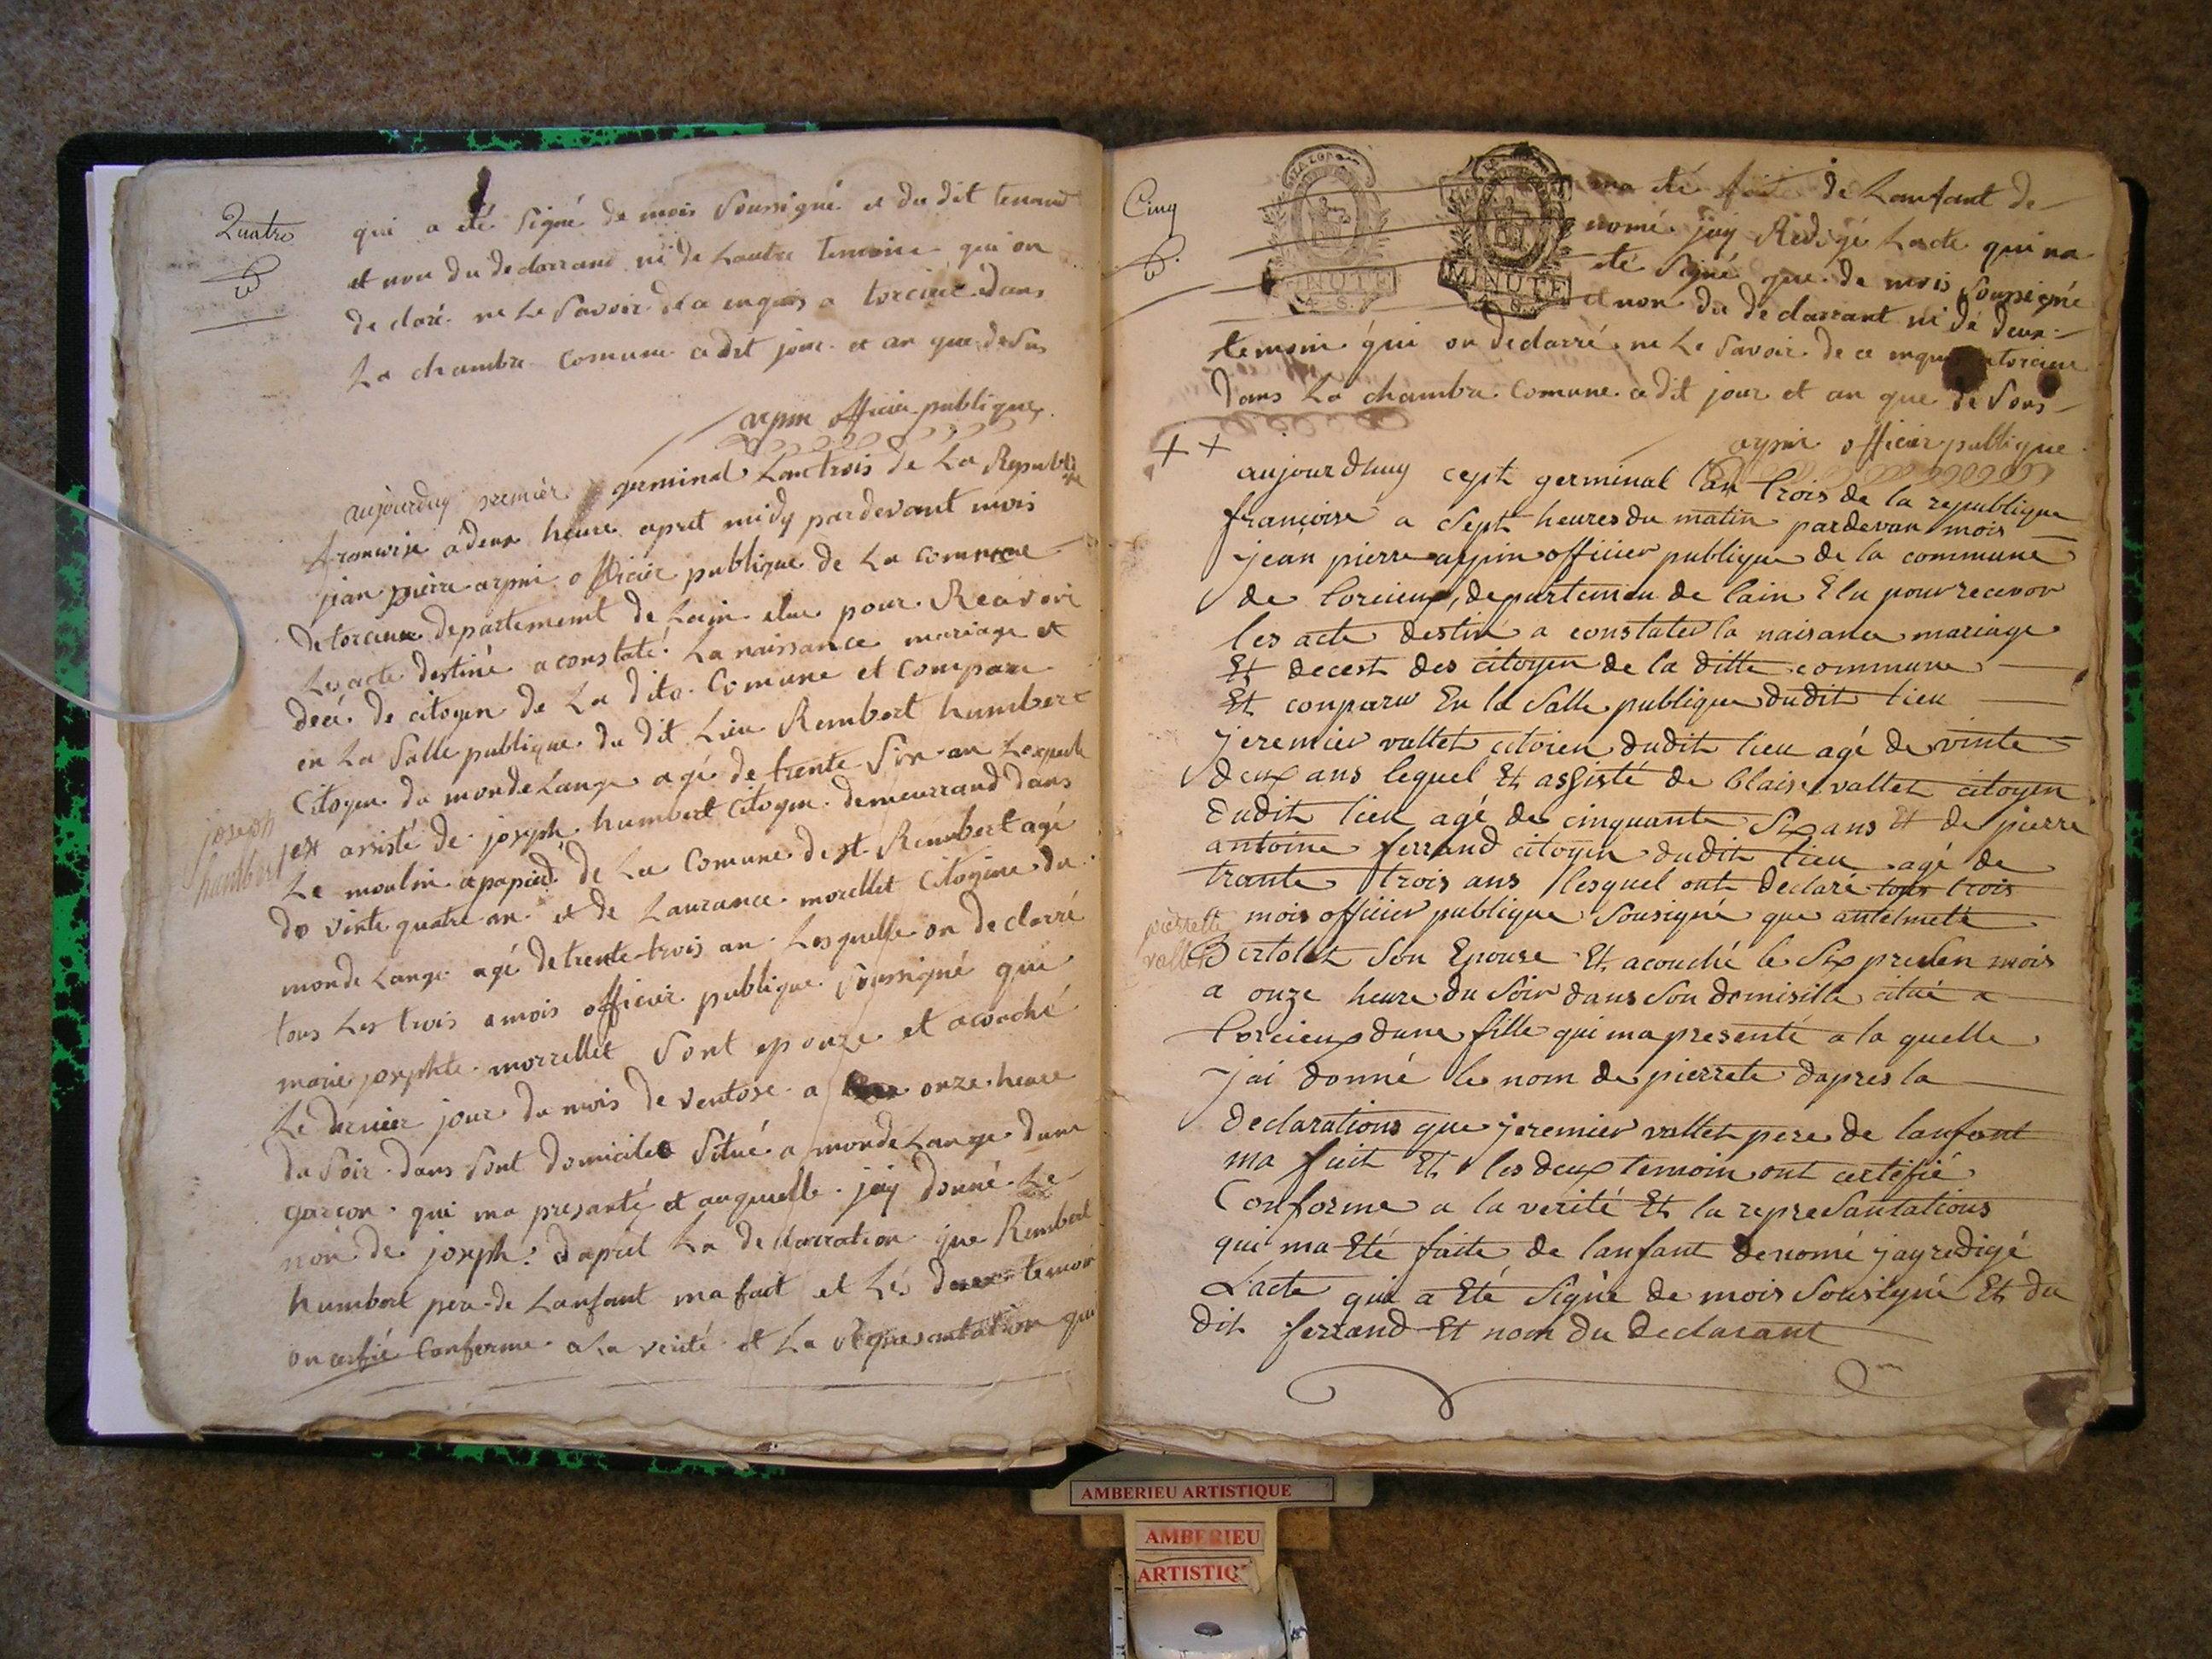 Quatre
qui a eté Signé de mois Soussigné et du dit tenand
et non du declarrant ni de Lautre temoins qui on
declaré ne Le Savoir a torcieu dans
La chambre Comune a dit jour et an que desus
arpin officier publique
aujourduy premier germinal Lan trois de La Republique
francoise a deux heure apret midy pardevant mois
jean pierre arpin officier publique de La Commune
de torcieux departement de Lain elue pour Recevoir
Les acte destiné a constaté La naissance mariage et
decé de citoyen de La dite Comune et Comparu
en La Salle publique du dit Lieu Rembert humbert
Citoyen du monde Lange agé de trente Six an Lequele
joseph
humbert
est assisté de joseph humbert Citoyen demeurrand dans
Le moulin apapied de La Comune de st Rembert agé
de vinte quatre an et de Laurance morellet Citoyene du
monde Lange agé de trente trois an Lesquelle on declarré
tous Les trois a mois officier publique Soussigné que
marie josephte morrellet Sont epouze et acouché
Le dernier jour du mois de ventose a onze heure
du Soir dans Sont domicile Situé a monde Lange dun
garcon qui ma presanté et auquelle jay donné Le
non de joseph dapret La declarration que Rembert
humbert pere de Lanfant ma fait et Les deux temoin
on certfié Conforme a La verité et La Representation qui
Cinq
MINUTE
4. S.
MINUTE
4. S.
ma eté faite de Lanfant de
nomé jay Redigé Lacte qui na
eté Signé que de mois Soussigné
et non du declarrant ni de deux
temoin qui on declarré ne Le Savoir de ce torcieu
dans La chambre Comune a dit jour et an que de Sous
arpin officier publique
+ +
aujourdhuy cept germinal lan trois de la republique
francoise a Sept heures du matin pardevan mois
jean pierre arpin officier publique de la commune
de torcieux, departemen de lain Elu pour recevoir
les acte destiné a constater la naisance mariage
Et decest des citoyen de la ditte commune
Et conparu En la Salle publique dudit lieu
jeremier vallet citoien dudit lieu agé de vinte
deux ans lequel Et assisté de blaise vallet citoyen
dudit lieu agé de cinquante Six ans Et de pierre
antoine ferrand citoyen dudit lieu agé de
trante trois ans lesquel ont declaré tous trois
pierrette
vallet
mois officier publique Sousigné que antelmete
Bertolet Son Epouse Et acouché le Six presen mois
a onze heure du Soir dans Son domisille citué a
torcieux dune fille qui ma presenté a la quelle
jai donné le nom de pierrete dapres la
declarations que jeremier vallet pere de lanfant
ma fait Et les deux temoin ont certéfié
Conforme a la verité Et la represantations
qui ma Eté faite de lanfant denomé jay redigé
Lacte qui a Eté Signé de mois Sousigné Et du
dit ferrand Et nom du declarant
AMBERIEU ARTISTIQUE
AMBERIEU
ARTISTIQ